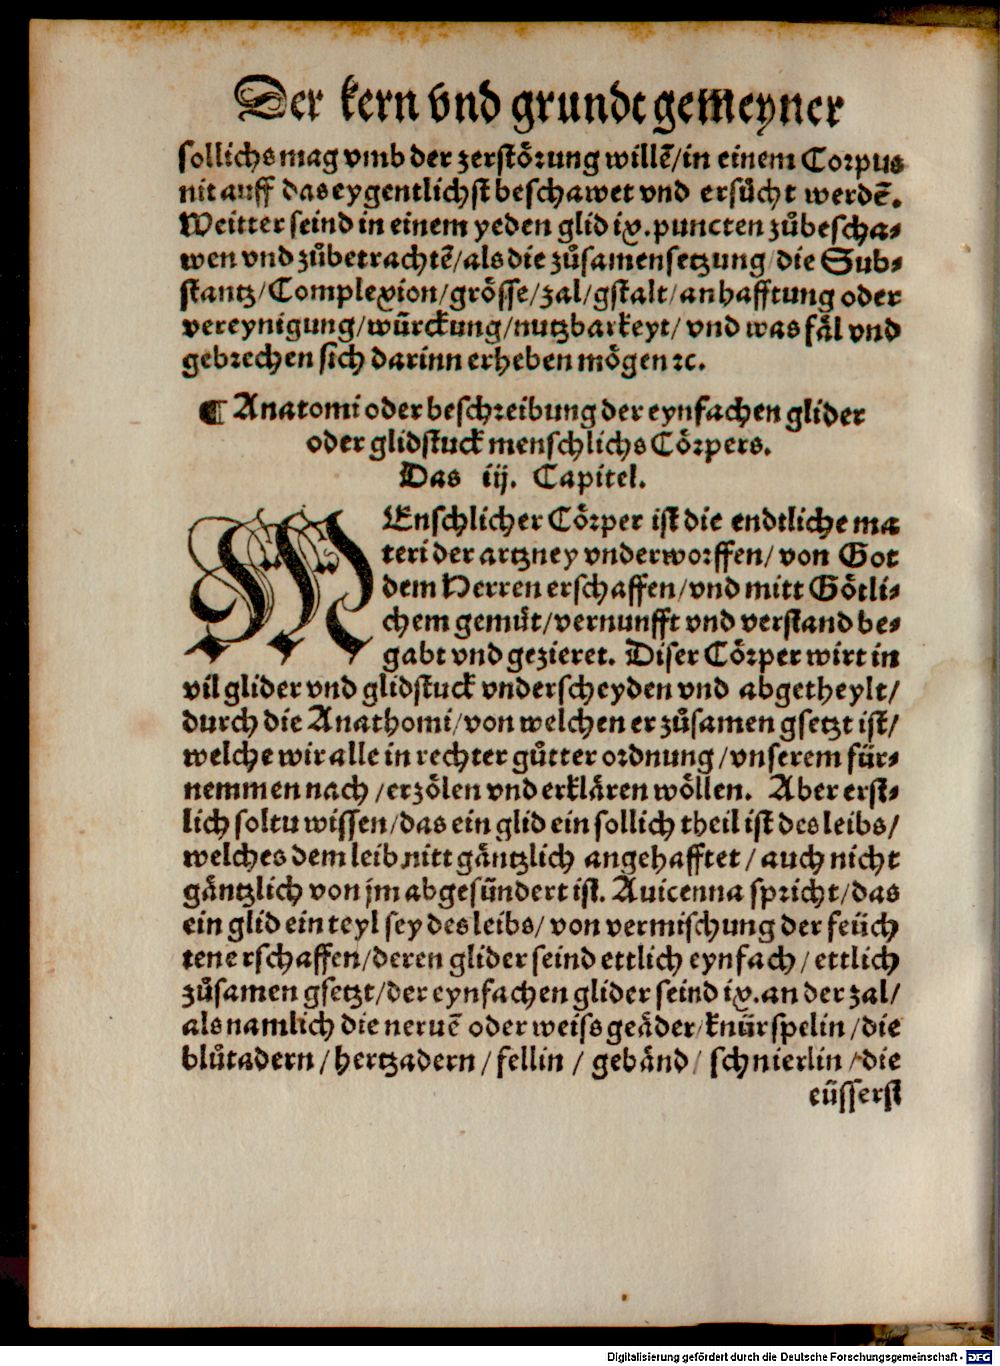 Der kern vnd grundt gemeyner
sollichs mag vmb der zerstörung willẽ/in einem Corpus
nit auff das eygentlichst beschawet vnd ersůcht werdẽ.
Weitter seind in einem yeden glid ix. puncten zůbescha⸗
wen vnd zůbetrachtẽ/als die zůsamensetzung/die Sub⸗
stantz/Complexion/grösse/zal/gstalt/anhafftung oder
vereynigung/würckung/nutzbarkeyt/vnd was fäl vnd
gebrechen sich darinn erheben mögen ꝛc.
¶ Anatomi oder beschreibung der eynfachen glider
oder glidstuck menschlichs Cörpers.
Das iij. Capitel.
MEnschlicher Cörper ist die endtliche ma
teri der artzney vnderworffen/von Got
dem Herren erschaffen/vnd mitt Götli⸗
chem gemůt/vernunfft vnd verstand be⸗
gabt vnd gezieret. Diser Cörper wirt in
vil glider vnd glidstuck vnderscheyden vnd abgetheylt/
durch die Anathomi/von welchen er zůsamen gsetzt ist/
welche wir alle in rechter gůtter ordnung/vnserem für⸗
nemmen nach/erzölen vnd erklären wöllen. Aber erst⸗
lich soltu wissen/das ein glid ein sollich theil ist des leibs/
welches dem leib nitt gäntzlich angehafftet/auch nicht
gäntzlich von jm abgesündert ist. Auicenna spricht/das
ein glid ein teyl sey des leibs/von vermischung der feüch
tene rschaffen/deren glider seind ettlich eynfach/ettlich
zůsamen gsetzt/der eynfachen glider seind ix. an der zal/
als namlich die neruẽ oder weiss geäder/knürspelin/die
blůtadern/hertzadern/fellin/gebänd/schnierlin/die
eüsserst
Digitalisierung gefördert durch die Deutsche Forschungsgemeinschaft - DFG